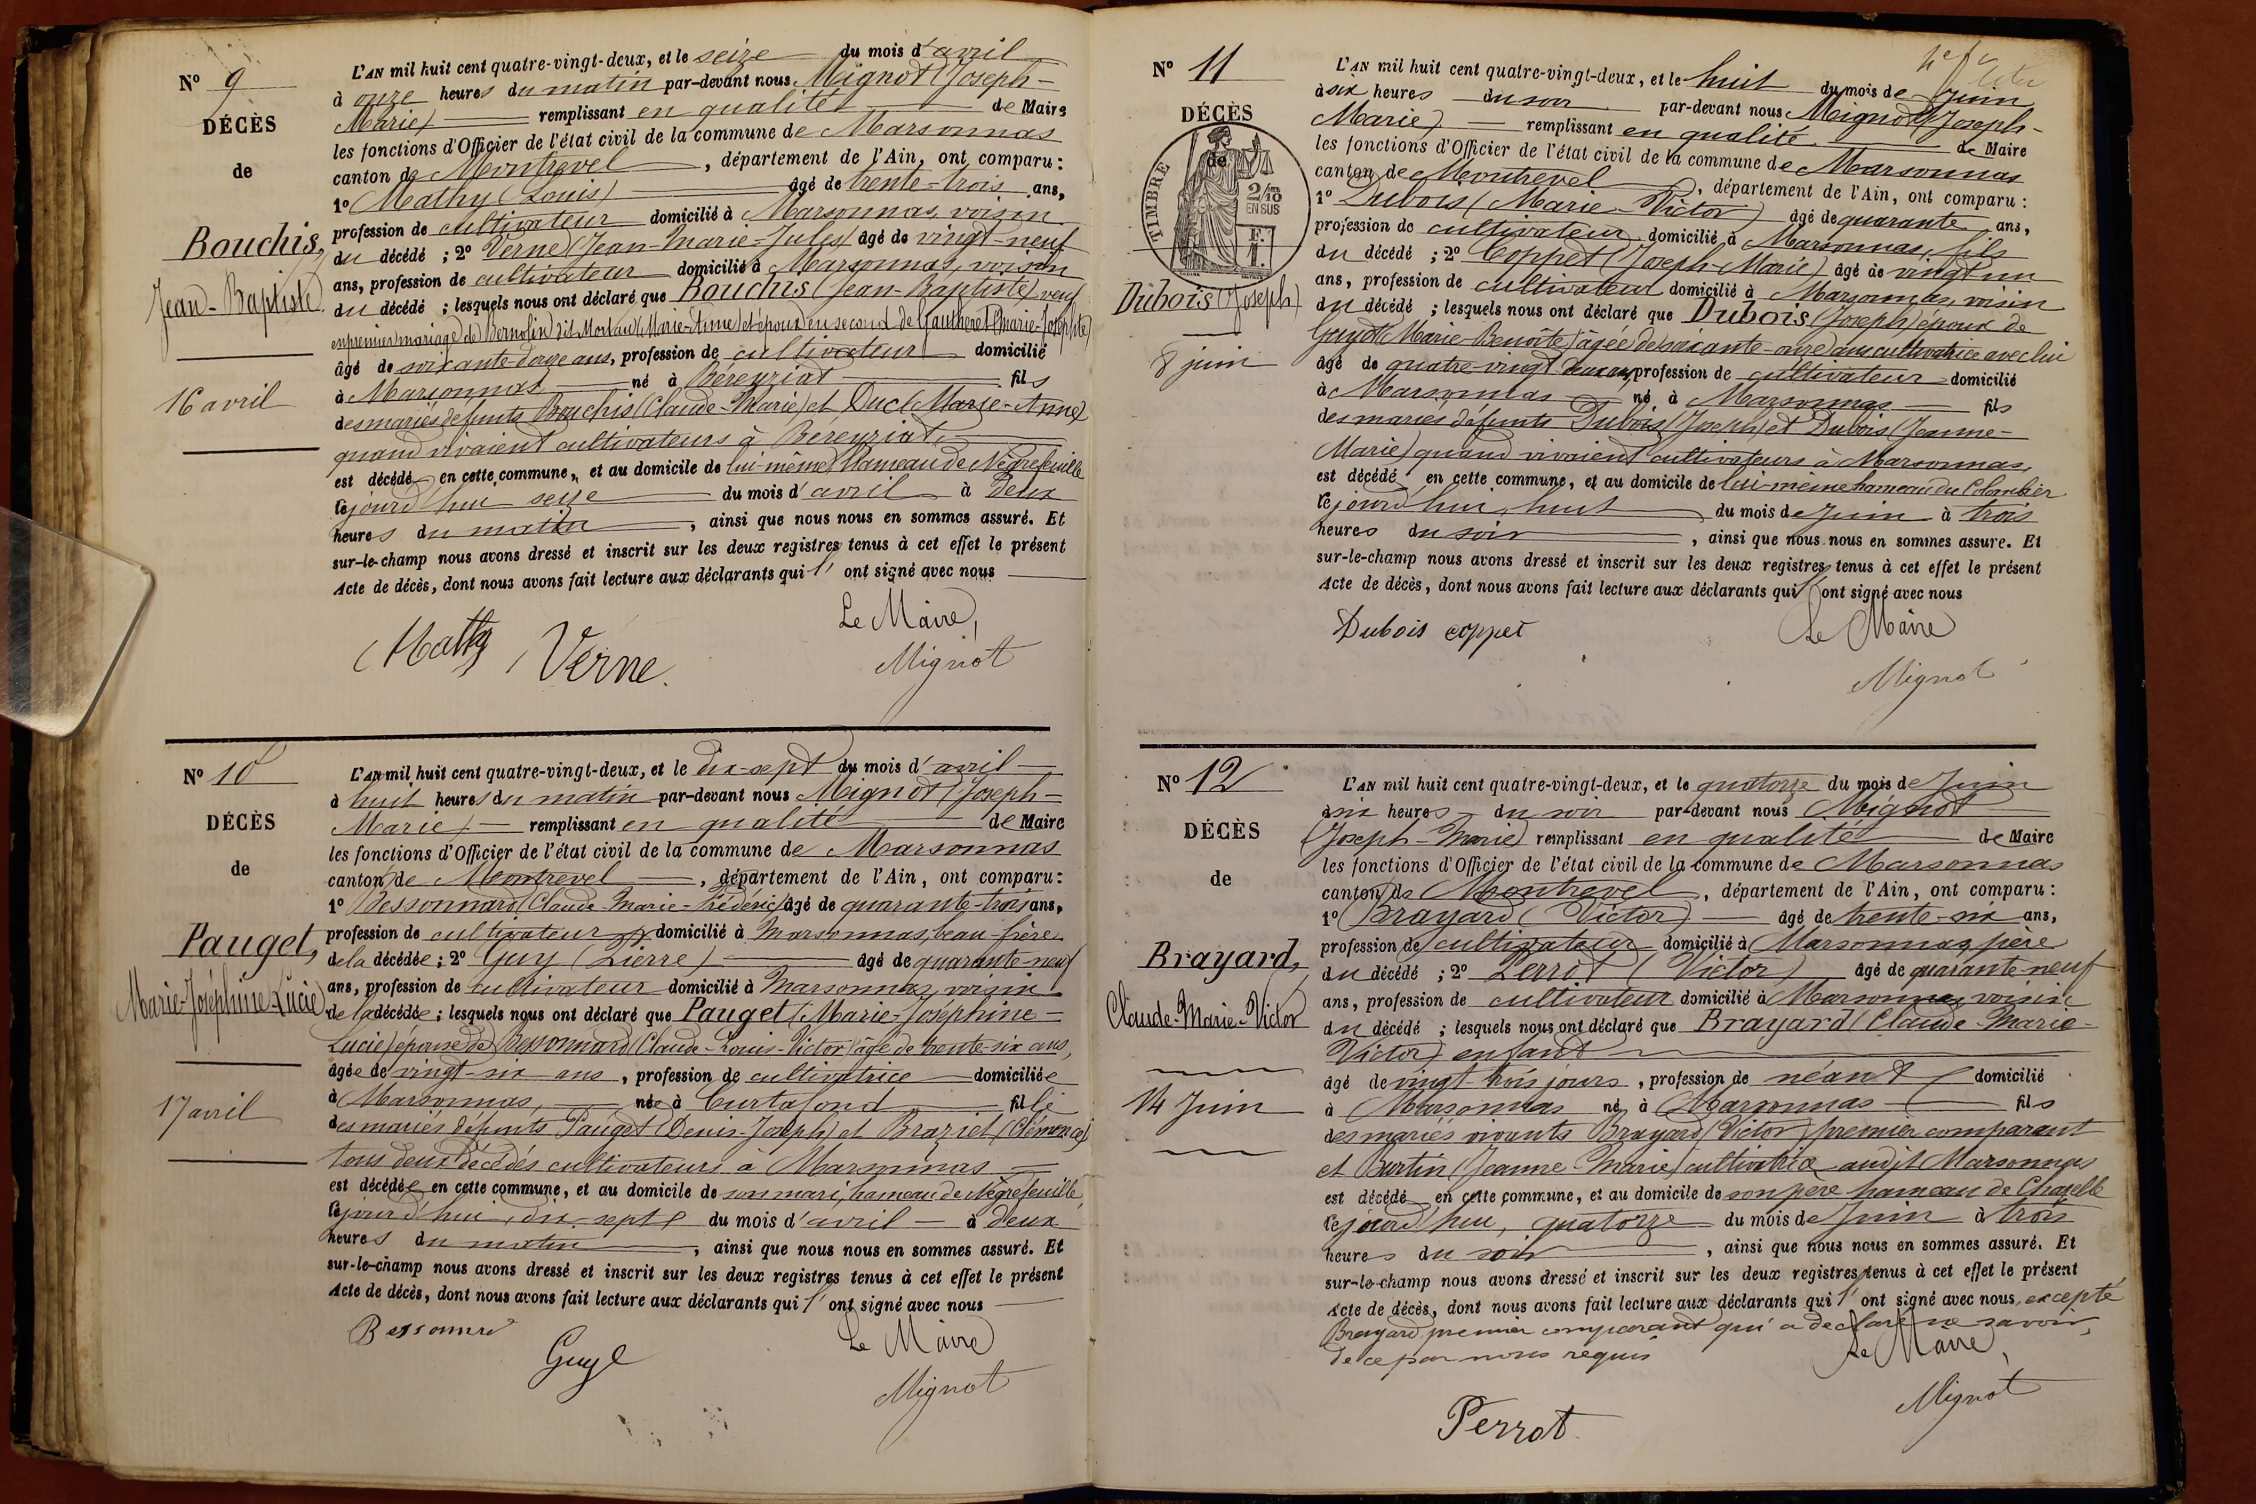 N° 9
DÉCÈS
de
Bouchis,
Jean-Baptiste
16 avril
L'AN mil huit cent quatre-vingt-deux, et le seize du mois d'avril
à onze heures du matin par-devant nous Mignot (Joseph-
Marie) remplissant en qualité de Maire
les fonctions d'Officier de l'état civil de la commune de Marsonnas
canton de Montrevel, département de l'Ain, ont comparu :
1° Mathy (Louis) âgé de trente-trois ans,
profession de cultivateur domicilié à Marsonnas, voisin
du décédé ; 2° Verne (Jean-Marie-Jules) âgé de vingt-neuf
ans, profession de cultivateur domicilié à Marsonnas, voisin
du décédé ; lesquels nous ont déclaré que Bouchis (Jean-Baptiste) veuf
en premier mariage de Bernolin dit Morland (Marie-Anne) et époux en second de Gautheret (Marie-Josephte)
âgé de soixante-douze ans, profession de cultivateur domicilié
à Marsonnas né à Béreyziat fils
des mariés défunts Bouchis (Claude-Marie) et Duc (Marie-Anne)
quand vivaient cultivateurs à Béreyziat,
est décédé en cette commune, et au domicile de lui-même hameau de Négrefeuille
cejourd'hui seize du mois d'avril à deux
heures du matin, ainsi que nous nous en sommes assuré. Et
sur-le-champ nous avons dressé et inscrit sur les deux registres tenus à cet effet le présent
Acte de décès, dont nous avons fait lecture aux déclarants qui l'ont signé avec nous
Mathy Verne
Le Maire,
Mignot
N° 10
DÉCÈS
de
Pauget,
Marie-Joséphine-Lucie
17 avril
L'AN mil huit cent quatre-vingt-deux, et le dix-sept du mois d'avril
à huit heures du matin par-devant nous Mignot (Joseph-
Marie) remplissant en qualité de Maire
les fonctions d'Officier de l'état civil de la commune de Marsonnas
canton de Montrevel, département de l'Ain, ont comparu :
1° Bessonnard (Claude-Marie-Frédéric) âgé de quarante-trois ans,
profession de cultivateur domicilié à Marsonnas, beau-frère
de la décédée ; 2° Guy (Pierre) âgé de quarante-neuf
ans, profession de cultivateur domicilié à Marsonnas, voisin
de la décédée ; lesquels nous ont déclaré que Pauget (Marie-Joséphine-
Lucie) épouse de Bessonnard (Claude-Louis-Victor) âgé de trente-six ans,
âgée de vingt-six ans, profession de cultivatrice domiciliée
à Marsonnas, née à Curtafond fille
des mariés défunts Pauget (Denis-Joseph) et Braziet (Clémence)
tous deux décédés cultivateurs à Marsonnas
est décédée en cette commune, et au domicile de son mari, hameau de Négrefeuille
cejourd'hui, dix-sept du mois d'avril à deux
heures du matin, ainsi que nous nous en sommes assuré. Et
sur-le-champ nous avons dressé et inscrit sur les deux registres tenus à cet effet le présent
Acte de décès, dont nous avons fait lecture aux déclarants qui l'ont signé avec nous
Guy
Le Maire
Mignot
N° 11
DÉCÈS
de
TIMBRE
2/10
EN SUS
Dubois (Joseph)
8 juin
L'AN mil huit cent quatre-vingt-deux, et le huit du mois de Juin
à six heures du soir par-devant nous Mignot (Joseph-
Marie) remplissant en qualité de Maire
les fonctions d'Officier de l'état civil de la commune de Marsonnas
canton de Montrevel, département de l'Ain, ont comparu :
1° Dubois (Marie-Victor) âgé de quarante ans,
profession de cultivateur domicilié à Marsonnas, fils
du décédé ; 2° Coppet (Joseph-Marie) âgé de vingt-un
ans, profession de cultivateur domicilié à Marsonnas, voisin
du décédé ; lesquels nous ont déclaré que Dubois (Joseph) époux de
Guyot (Marie-Benoîte) âgée de soixante-onze ans cultivatrice avec lui
âgé de quatre-vingt deux ans, profession de cultivateur domicilié
à Marsonnas né à Marsonnas fils
des mariés défunts Dubois (Joseph) et Dubois (Jeanne-
Marie) quand vivaient cultivateurs à Marsonnas,
est décédé en cette commune, et au domicile de lui-même hameau du Colombier
cejourd'hui, huit du mois de Juin à trois
heures du soir, ainsi que nous nous en sommes assuré. Et
sur-le-champ nous avons dressé et inscrit sur les deux registres tenus à cet effet le présent
Acte de décès, dont nous avons fait lecture aux déclarants qui l'ont signé avec nous
Dubois coppet
Le Maire
Mignot
N° 12
DÉCÈS
de
Brayard,
Claude-Marie-Victor
14 Juin
L'AN mil huit cent quatre-vingt-deux, et le quatorze du mois de Juin
à six heures du soir par-devant nous Mignot
(Joseph-Marie) remplissant en qualité de Maire
les fonctions d'Officier de l'état civil de la commune de Marsonnas
canton de Montrevel, département de l'Ain, ont comparu :
1° Brayard (Victor) âgé de trente-six ans,
profession de cultivateur domicilié à Marsonnas, père
du décédé ; 2° Perrot (Victor) âgé de quarante-neuf
ans, profession de cultivateur domicilié à Marsonnas, voisin
du décédé ; lesquels nous ont déclaré que Brayard (Claude-Marie-
Victor) enfant
âgé de vingt-trois jours, profession de néant domicilié
à Marsonnas né à Marsonnas fils
des mariés vivants Brayard (Victor) premier comparant
et Burtin (Jeanne-Marie) cultivatrice audit Marsonnas
est décédé en cette commune, et au domicile de son père hameau de Chazelle
cejourd'hui, quatorze du mois de Juin à trois
heures du soir, ainsi que nous nous en sommes assuré. Et
sur-le-champ nous avons dressé et inscrit sur les deux registres tenus à cet effet le présent
Acte de décès, dont nous avons fait lecture aux déclarants qui l'ont signé avec nous, excepté
Brayard premier comparant qui a déclaré ne savoir,
de ce par nous requis
Le Maire,
Mignot
Perrot